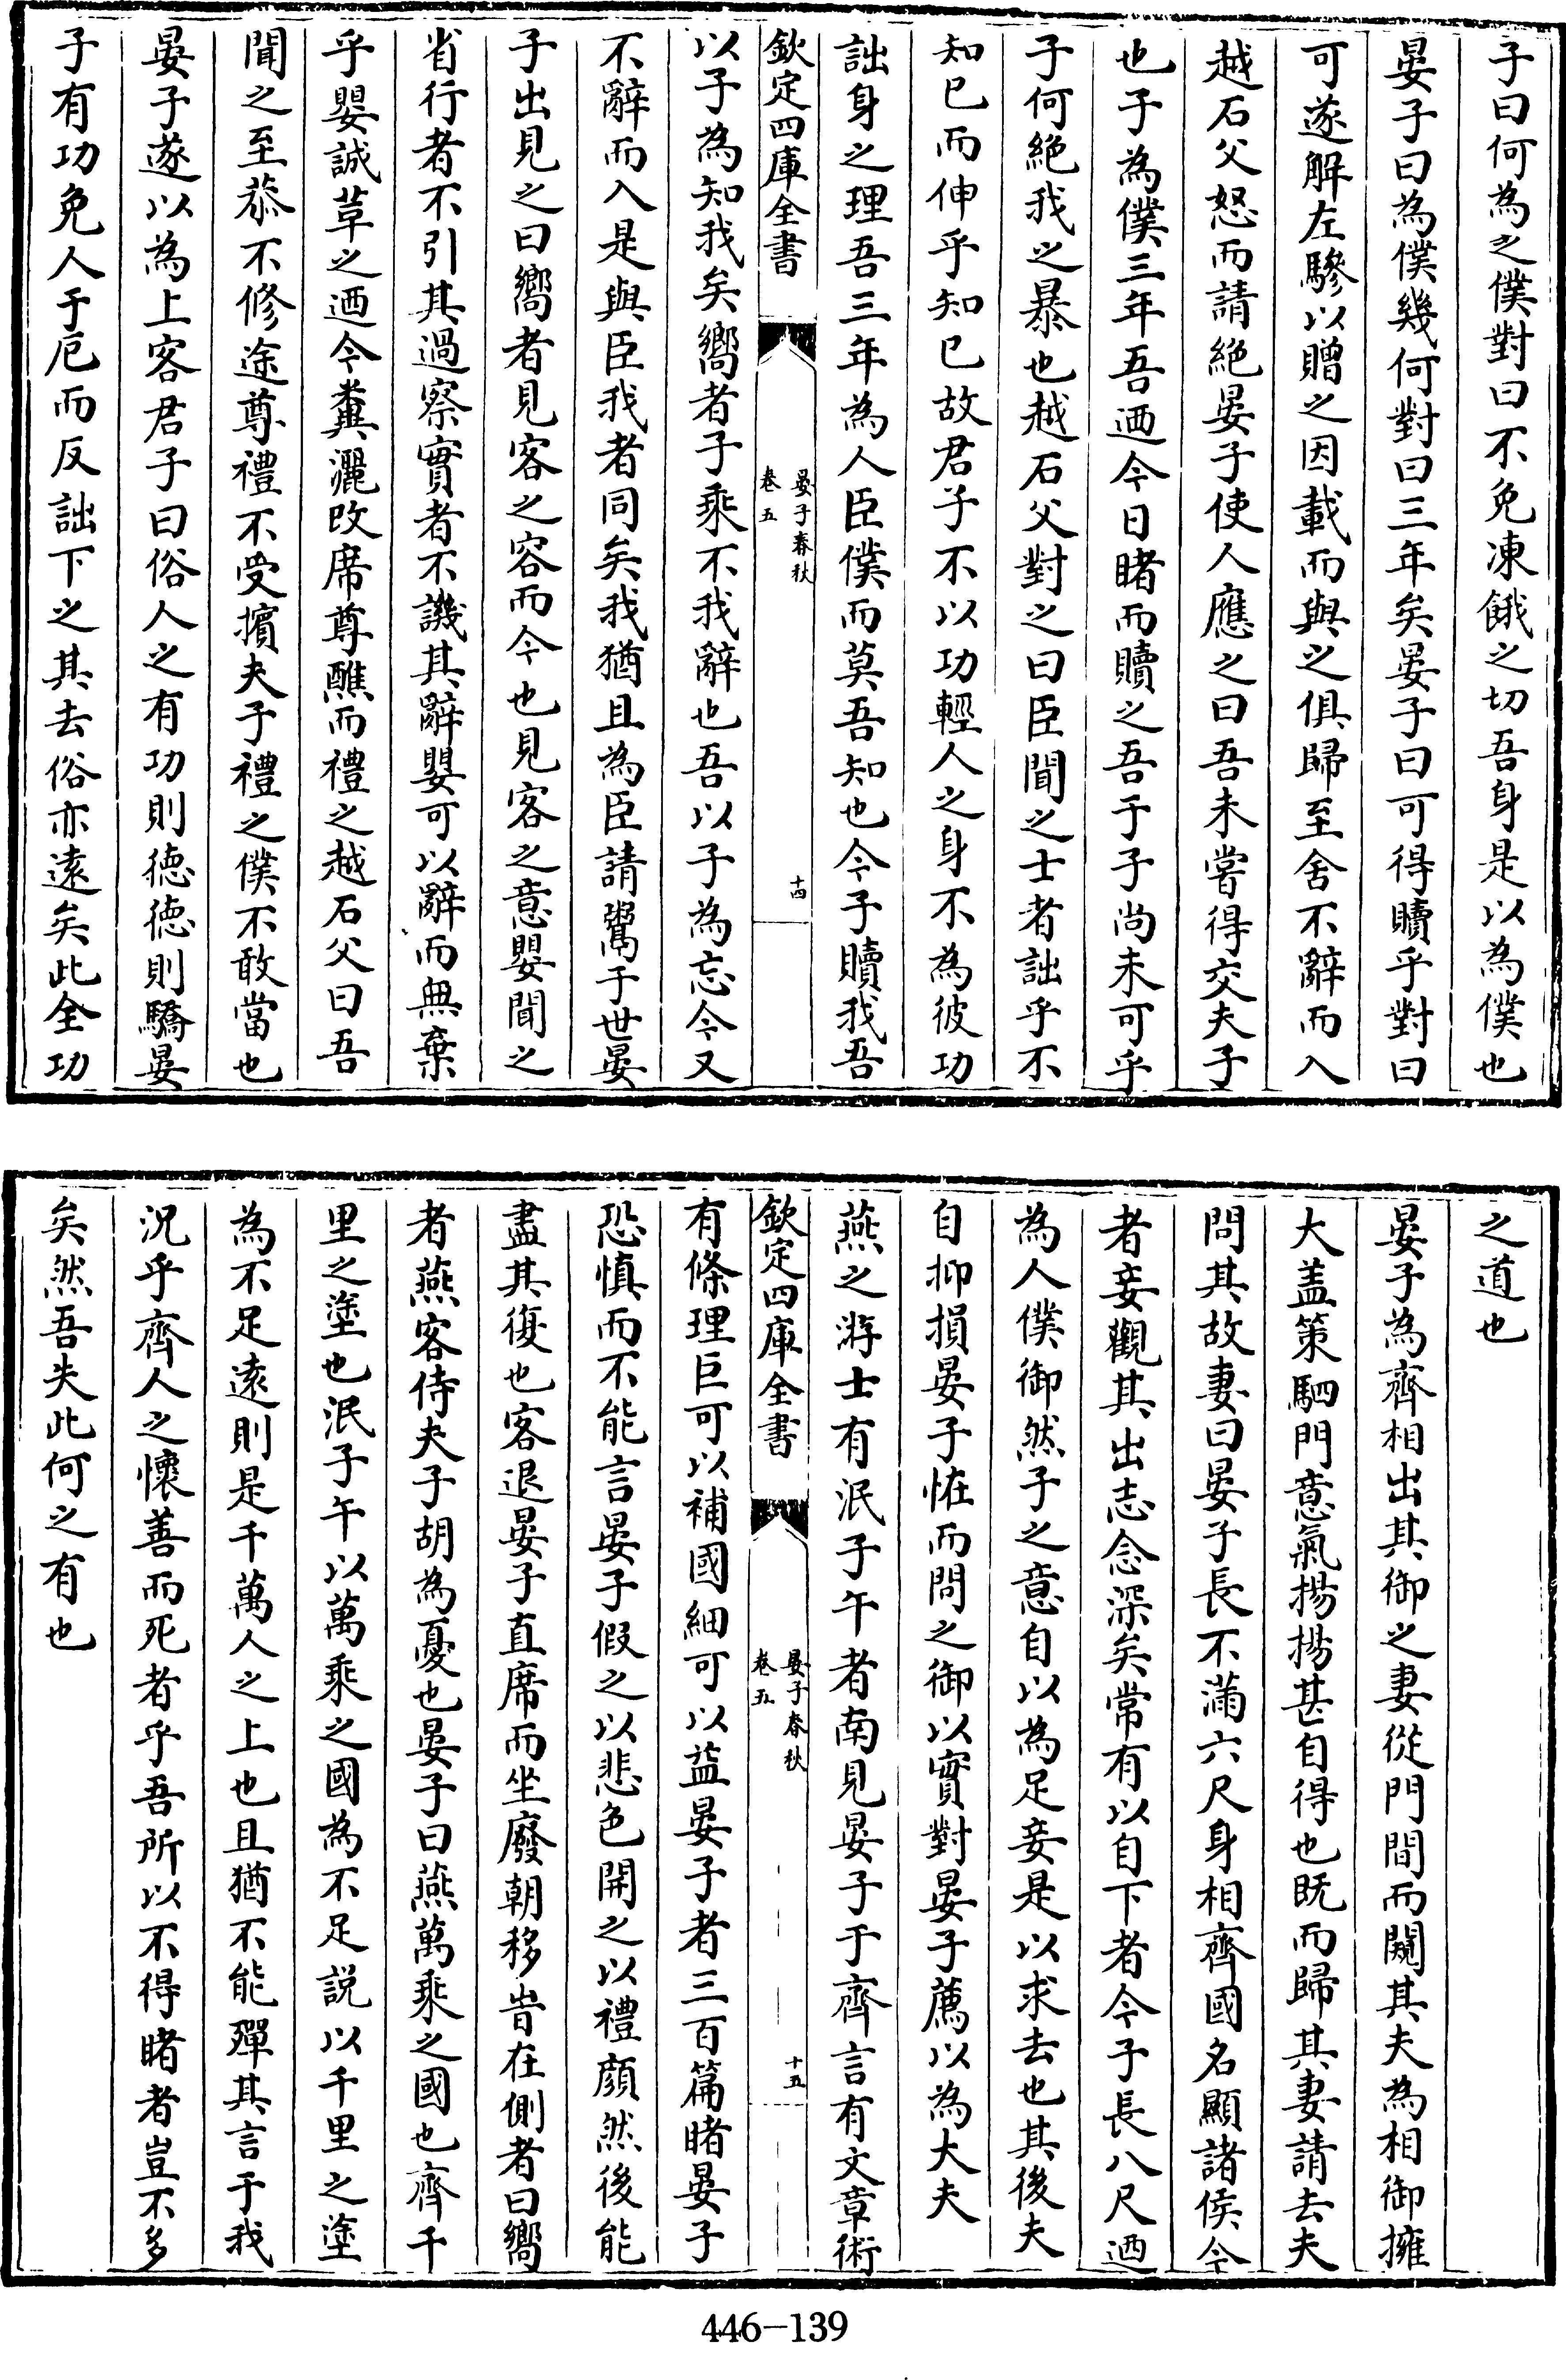 子曰何為之僕對曰不免凍餓之切吾身是以為僕也
晏子曰為僕幾何對曰三年矣晏子曰可得贖乎對曰
可遂解左驂以贈之因載而與之俱歸至舍不辭而入
越石父怒而請絶晏子使人應之曰吾未嘗得交夫子
也子為僕三年吾迺今日睹而贖之吾于子尚未可乎
子何絶我之暴也越石父對之曰臣聞之士者詘乎不
知已而伸乎知已故君子不以功輕人之身不為彼功
詘身之理吾三年為人臣僕而莫吾知也今子贖我吾
欽定四庫全書
晏子春秋
卷五
十四
以子為知我矣嚮者子乘不我辭也吾以子為忘今又
不辭而入是與臣我者同矣我猶且為臣請鬻于世晏
子出見之曰嚮者見客之容而今也見客之意嬰聞之
省行者不引其過察實者不譏其辭嬰可以辭而無棄
乎嬰誠革之迺令糞灑改席尊醮而禮之越石父曰吾
聞之至恭不修途尊禮不受擯夫子禮之僕不敢當也
晏子遂以為上客君子曰俗人之有功則徳徳則驕晏
子有功免人于厄而反詘下之其去俗亦遠矣此全功
之道也
晏子為齊相出其御之妻從門間而闚其夫為相御擁
大盖策駟門意氣揚揚甚自得也既而歸其妻請去夫
問其故妻曰晏子長不滿六尺身相齊國名顯諸侯今
者妾觀其出志念深矣常有以自下者今子長八尺迺
為人僕御然子之意自以為足妾是以求去也其後夫
自抑損晏子恠而問之御以實對晏子薦以為大夫
燕之游士有泯子午者南見晏子于齊言有文章術
欽定四庫全書
晏子春秋
卷五
十五
有條理巨可以補國細可以益晏子者三百篇睹晏子
恐慎而不能言晏子假之以悲色開之以禮顔然後能
盡其復也客退晏子直席而坐廢朝移旹在側者曰嚮
者燕客侍夫子胡為憂也晏子曰燕萬乘之國也齊千
里之塗也泯子午以萬乘之國為不足説以千里之塗
為不足遠則是千萬人之上也且猶不能殫其言于我
況乎齊人之懷善而死者乎吾所以不得睹者豈不多
矣然吾失此何之有也
446-139